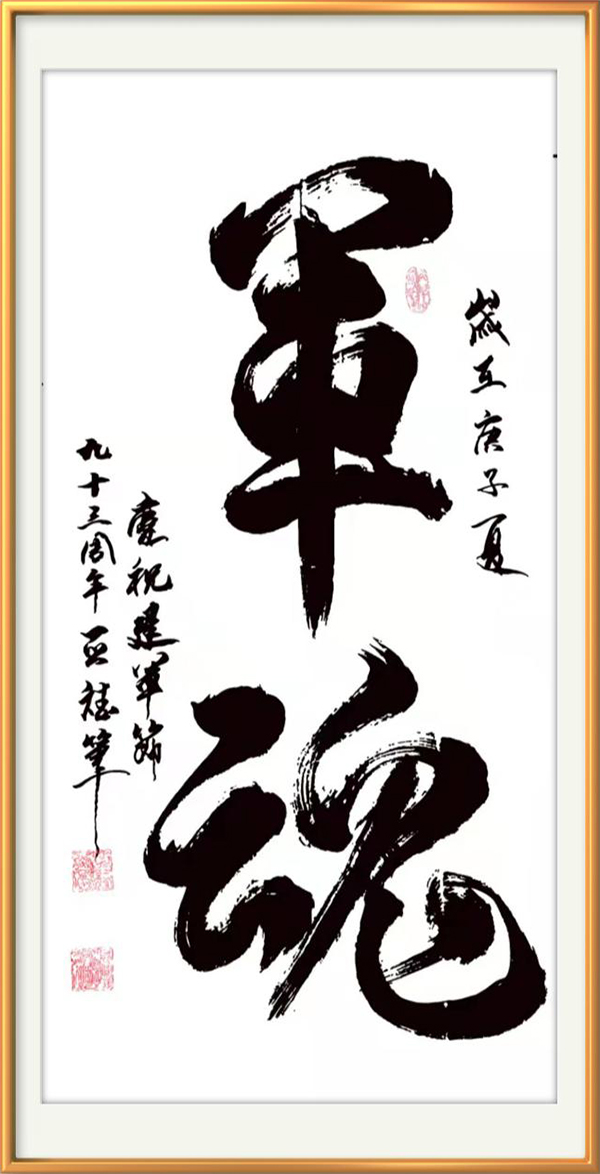 歲在庚子夏
軍魂
慶祝建軍節
九十三周年亞筆